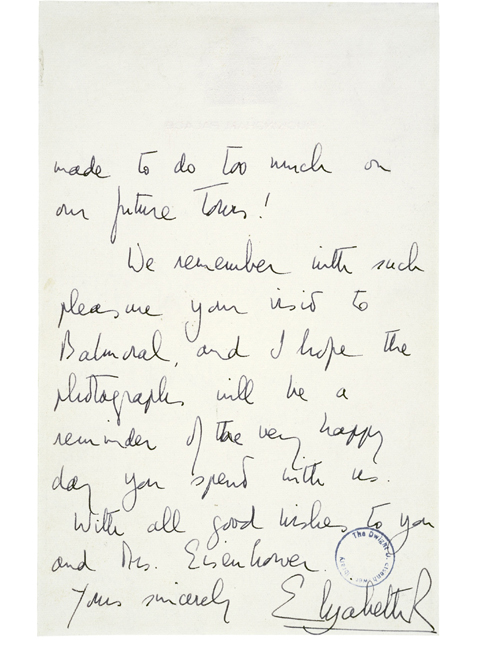 made to do too much on
our future Tours!
We remember with such
pleasure your visit to
Balmoral, and I hope the
photographs will be a
reminder of the very happy
day you spend with us.
With all good wishes to you
and Mrs. Eisenhower.
The Dwight D. Eisenhower Library
Yours sincerely
Elizabeth R